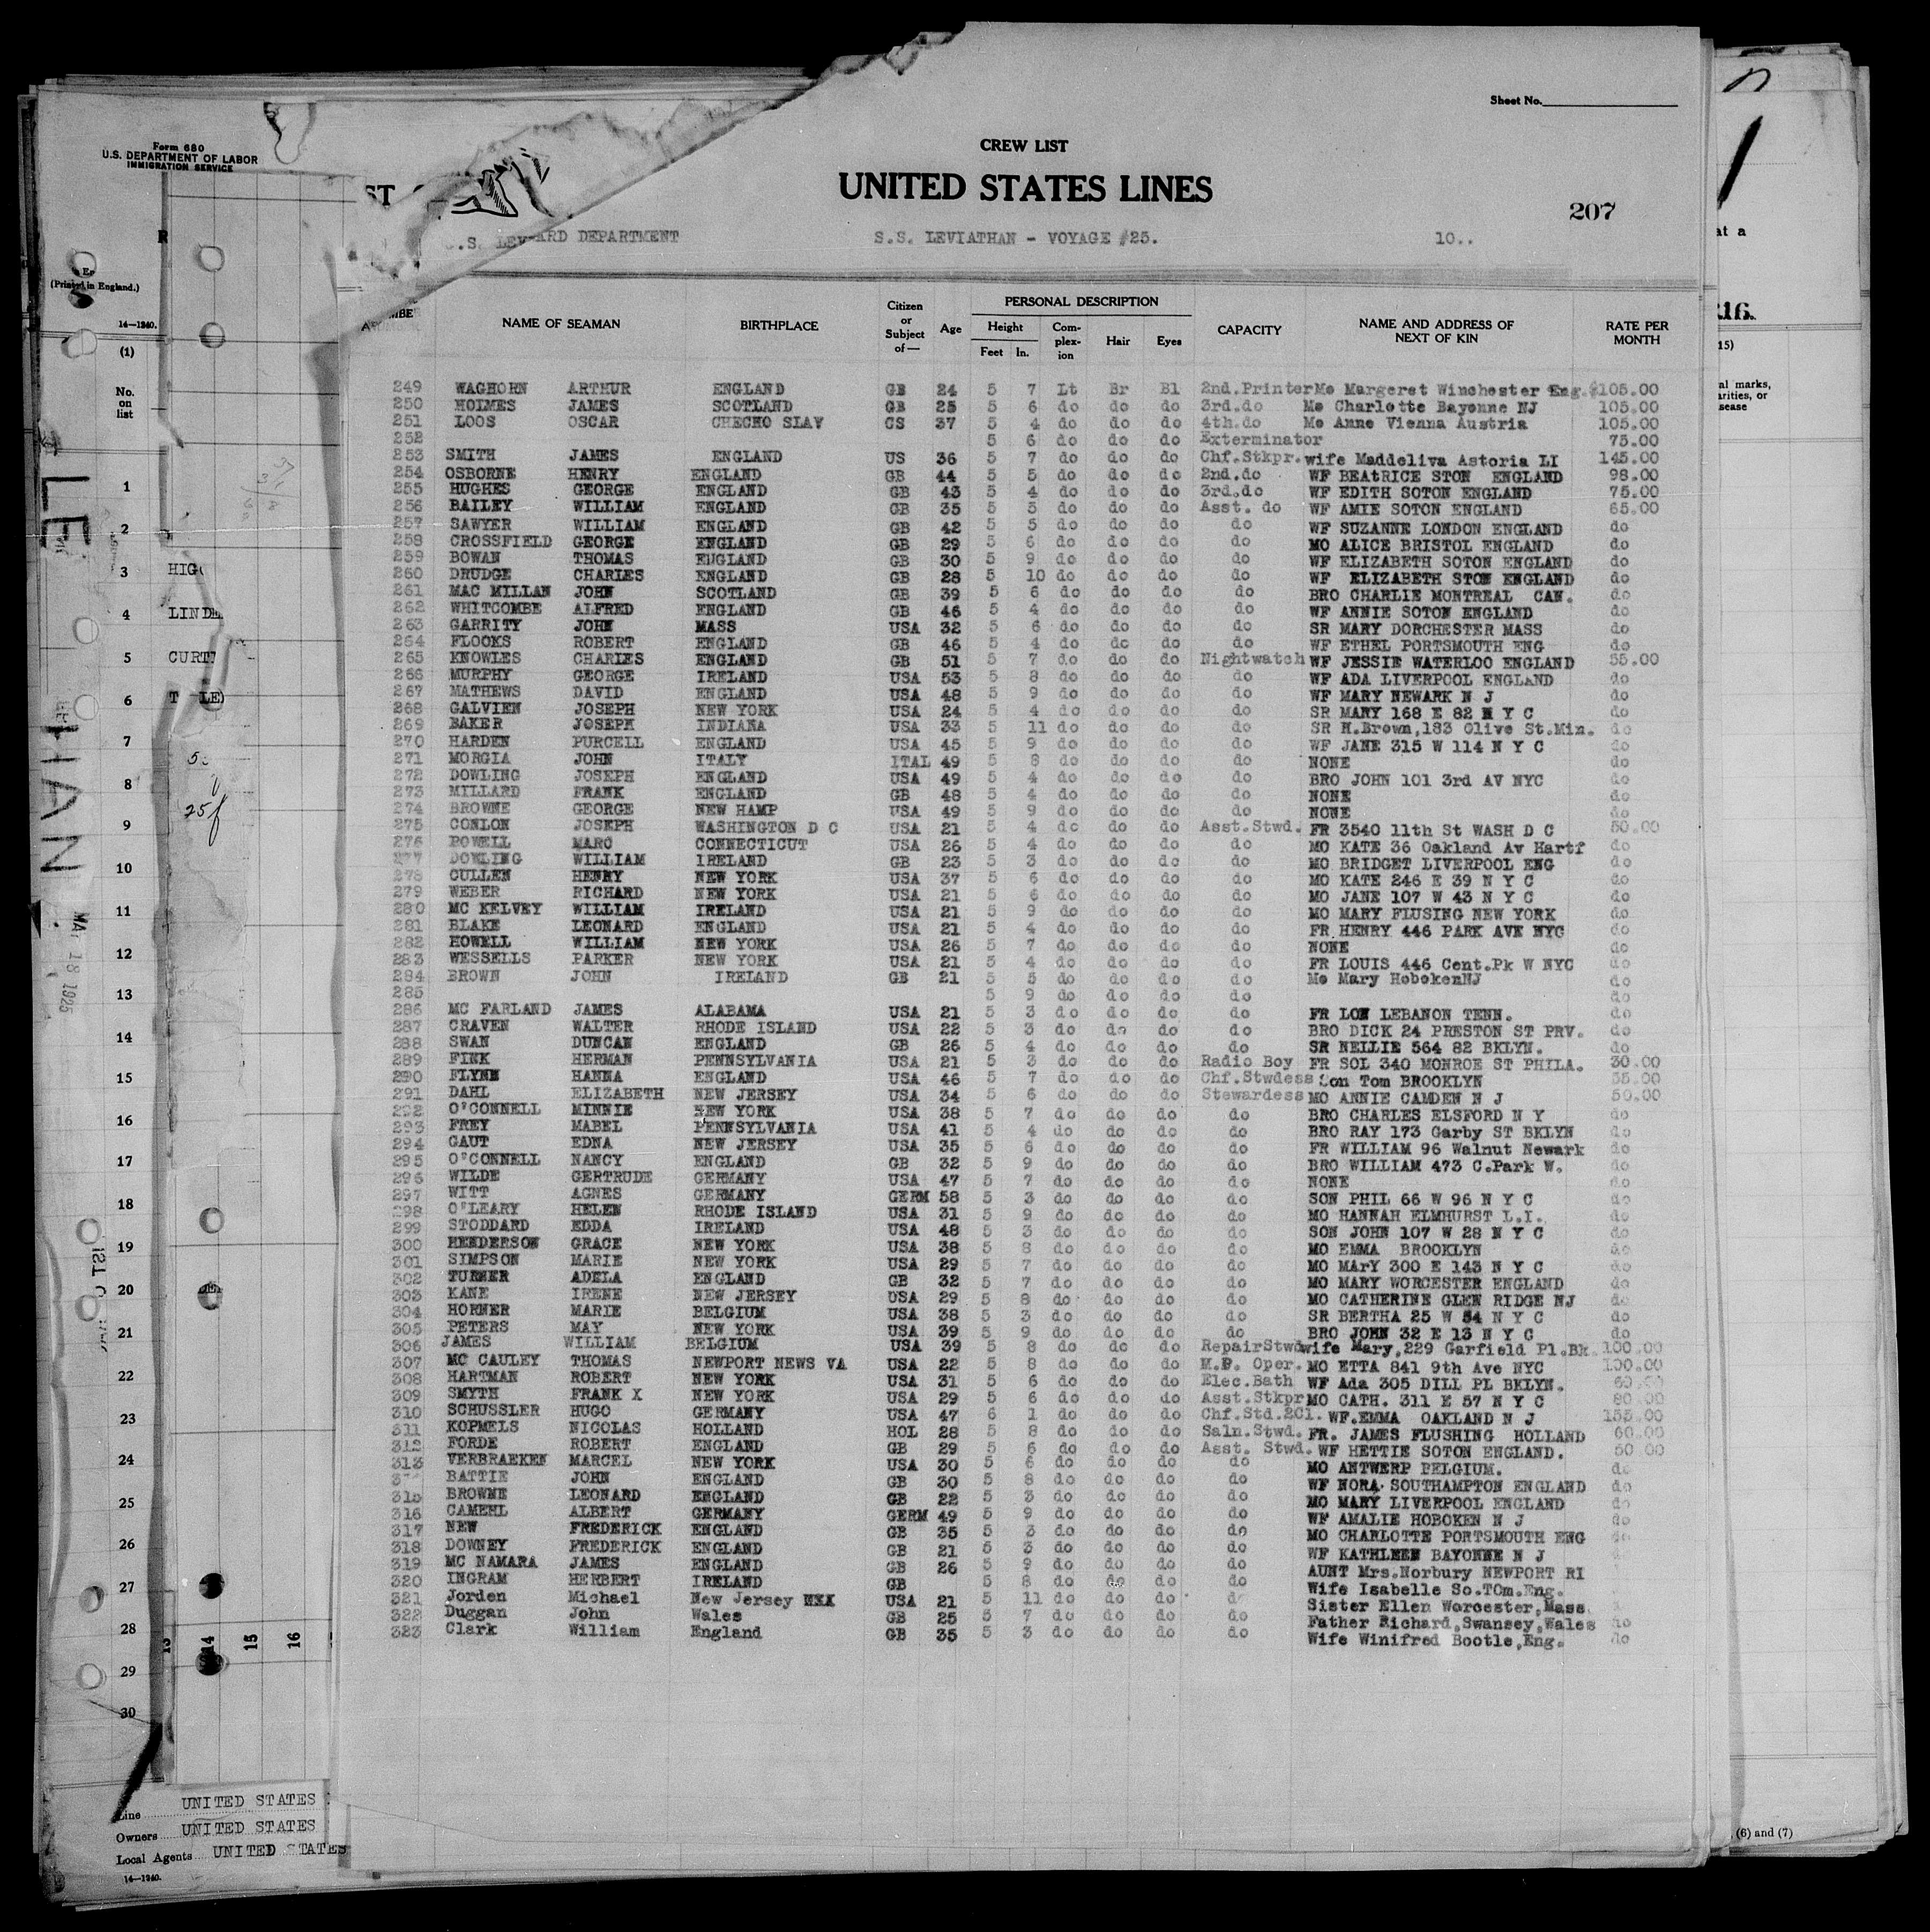 Sheet No.
CREW LIST
UNITED STATES LINES
207
ARD DEPARTMENT S.S. LEVIATHAN - VOYAGE #25. 10..
NAME OF SEAMAN BIRTHPLACE Citizen or Subject of— Age PERSONAL DESCRIPTION Height Feet In. Com-plex-ion Hair Eyes CAPACITY NAME AND ADDRESS OF NEXT OF KIN RATE PER MONTH
249 WAGHORN ARTHUR ENGLAND GB 24 5 7 Lt Br Bl 2nd.Printer Mo Margeret Winchester Eng. $105.00
250 HOLMES JAMES SCOTLAND GB 25 5 6 do do do 3rd.do Mo Charlotte Bayonne NJ 105.00
251 LOOS OSCAR CHECHO SLAV CS 37 5 4 do do do 4th.do Mo Anne Vienna Austria 105.00
252 5 6 do do do Exterminator 75.00
253 SMITH JAMES ENGLAND US 36 5 7 do do do Chf.Stkpr. wife Maddeliva Astoria LI 145.00
254 OSBORNE HENRY ENGLAND GB 44 5 5 do do do 2nd.do WF BEATRICE STON ENGLAND 98.00
255 HUGHES GEORGE ENGLAND GB 43 5 4 do do do 3rd.do WF EDITH SOTON ENGLAND 75.00
256 BAILEY WILLIAM ENGLAND GB 35 5 5 do do do Asst. do WF AMIE SOTON ENGLAND 65.00
257 SAWYER WILLIAM ENGLAND GB 42 5 5 do do do do WF SUZANNE LONDON ENGLAND do
258 CROSSFIELD GEORGE ENGLAND GB 29 5 6 do do do do MO ALICE BRISTOL ENGLAND do
259 BOWAN THOMAS ENGLAND GB 30 5 9 do do do do WF ELIZABETH SOTON ENGLAND do
260 DRUDGE CHARLES ENGLAND GB 28 5 10 do do do do WF ELIZABETH STON ENGLAND do
261 MAC MILLAN JOHN SCOTLAND GB 39 5 6 do do do do BRO CHARLIE MONTREAL CAN. do
262 WHITCOMBE ALFRED ENGLAND GB 46 5 4 do do do do WF ANNIE SOTON ENGLAND do
263 GARRITY JOHN MASS USA 32 5 6 do do do do SR MARY DORCHESTER MASS do
264 FLOOKS ROBERT ENGLAND GB 46 5 4 do do do do WF ETHEL PORTSMOUTH ENG do
265 KNOWLES CHARLES ENGLAND GB 51 5 7 do do do Nightwatch WF JESSIE WATERLOO ENGLAND 55.00
266 MURPHY GEORGE IRELAND USA 53 5 8 do do do do WF ADA LIVERPOOL ENGLAND do
267 MATHEWS DAVID ENGLAND USA 48 5 9 do do do do WF MARY NEWARK N J do
268 GALVIEN JOSEPH NEW YORK USA 24 5 4 do do do do SR MARY 168 E 82 N Y C do
269 BAKER JOSEPH INDIANA USA 33 5 11 do do do do SR H.Brown,183 Olive St.Min. do
270 HARDEN PURCELL ENGLAND USA 45 5 9 do do do do WF JANE 315 W 114 N Y C do
271 MORGIA JOHN ITALY ITAL 49 5 8 do do do do NONE do
272 DOWLING JOSEPH ENGLAND USA 49 5 4 do do do do BRO JOHN 101 3rd AV NYC do
273 MILLARD FRANK ENGLAND GB 48 5 4 do do do do NONE do
274 BROWNE GEORGE NEW HAMP USA 49 5 9 do do do do NONE do
275 CONLON JOSEPH WASHINGTON D C USA 21 5 4 do do do Asst.Stwd. FR 3540 11th St WASH D C 50.00
276 POWELL MARC CONNECTICUT USA 26 5 4 do do do do MO KATE 36 Oakland Av Hartf do
277 DOWLING WILLIAM IRELAND GB 23 5 3 do do do do MO BRIDGET LIVERPOOL ENG do
278 CULLEN HENRY NEW YORK USA 37 5 6 do do do do MO KATE 246 E 39 N Y C do
279 WEBER RICHARD NEW YORK USA 21 5 6 do do do do MO JANE 107 W 43 N Y C do
280 MC KELVEY WILLIAM IRELAND USA 21 5 9 do do do do MO MARY FLUSING NEW YORK do
281 BLAKE LEONARD ENGLAND USA 21 5 4 do do do do FR HENRY 446 PARK AVE NYC do
282 HOWELL WILLIAM NEW YORK USA 26 5 7 do do do do NONE do
283 WESSELLS PARKER NEW YORK USA 21 5 4 do do do do FR LOUIS 446 Cent.Pk W NYC do
284 BROWN JOHN IRELAND GB 21 5 5 do do do do Mo Mary HobokenNJ do
285 5 9 do do do do do
286 MC FARLAND JAMES ALABAMA USA 21 5 3 do do do do FR LON LEBANON TENN. do
287 CRAVEN WALTER RHODE ISLAND USA 22 5 3 do do do do BRO DICK 24 PRESTON ST PRV. do
288 SWAN DUNCAN ENGLAND GB 26 5 4 do do do do SR NELLIE 564 82 BKLYN. do
289 FINK HERMAN PENNSYLVANIA USA 21 5 3 do do do Radio Boy FR SOL 340 MONROE ST PHILA. 30.00
290 FLYNN HANNA ENGLAND USA 46 5 7 do do do Chf.Stwdess Son Tom BROOKLYN 55.00
291 DAHL ELIZABETH NEW JERSEY USA 34 5 6 do do do Stewardess MO ANNIE CAMDEN N J 50.00
292 O'CONNELL MINNIE NEW YORK USA 38 5 7 do do do do BRO CHARLES ELSFORD N Y do
293 FREY MABEL PENNSYLVANIA USA 41 5 4 do do do do BRO RAY 173 Garby ST BKLYN do
294 GAUT EDNA NEW JERSEY USA 35 5 6 do do do do FR WILLIAM 96 Walnut Newark do
295 O'CONNELL NANCY ENGLAND GB 32 5 9 do do do do BRO WILLIAM 473 C.Park W. do
296 WILDE GERTRUDE GERMANY USA 47 5 7 do do do do NONE do
297 WITT AGNES GERMANY GERM 58 5 3 do do do do SON PHIL 66 W 96 N Y C do
298 O'LEARY HELEN RHODE ISLAND USA 31 5 9 do do do do MO HANNAH ELMHURST L.I. do
299 STODDARD EDDA IRELAND USA 48 5 3 do do do do SON JOHN 107 W 28 N Y C do
300 HENDERSON GRACE NEW YORK USA 38 5 8 do do do do MO EMMA BROOKLYN do
301 SIMPSON MARIE NEW YORK USA 29 5 7 do do do do MO MArY 300 E 143 N Y C do
302 TURNER ADELA ENGLAND GB 32 5 7 do do do do MO MARY WORCESTER ENGLAND do
303 KANE IRENE NEW JERSEY USA 29 5 8 do do do do MO CATHERINE GLEN RIDGE NJ do
304 HORNER MARIE BELGIUM USA 38 5 3 do do do do SR BERTHA 25 W 54 N Y C do
305 PETERS MAY NEW YORK USA 39 5 9 do do do do BRO JOHN 32 E 13 N Y C do
306 JAMES WILLIAM BELGIUM USA 39 5 8 do do do RepairStwd wife Mary,229 Garfield Pl.Bk. 100.00
307 MC CAULEY THOMAS NEWPORT NEWS VA USA 22 5 8 do do do M.P. Oper. MO ETTA 841 9th Ave NYC 100.00
308 HARTMAN ROBERT NEW YORK USA 31 5 6 do do do Elec.Bath WF Ada 305 DILL PL BKLYN. 60.00
309 SMYTH FRANK X NEW YORK USA 29 5 6 do do do Asst.Stkpr MO CATH. 311 E 57 N Y C 80.00
310 SCHUSSLER HUGO GERMANY USA 47 6 1 do do do Chf.Std.2Cl. WF.EMMA OAKLAND N J 153.00
311 KOPMELS NICOLAS HOLLAND HOL 28 5 8 do do do Saln.Stwd. FR. JAMES FLUSHING HOLLAND 60.00
312 FORDE ROBERT ENGLAND GB 29 5 6 do do do Asst. Stwd. WF HETTIE SOTON ENGLAND. 50.00
313 VERBRAEKEN MARCEL NEW YORK USA 30 5 6 do do do do MO ANTWERP BELGIUM. do
BATTIE JOHN ENGLAND GB 30 5 8 do do do do WF NORA SOUTHAMPTON ENGLAND do
315 BROWNE LEONARD ENGLAND GB 22 5 3 do do do do MO MARY LIVERPOOL ENGLAND do
316 CAMEHL ALBERT GERMANY GERM 49 5 9 do do do do WF AMALIE HOBOKEN N J do
317 NEW FREDERICK ENGLAND GB 35 5 3 do do do do MO CHARLOTTE PORTSMOUTH ENG
318 DOWNEY FREDERICK ENGLAND GB 21 5 3 do do do do WF KATHLEEN BAYONNE N J
319 MC NAMARA JAMES ENGLAND GB 26 5 9 do do do do AUNT Mrs.Norbury NEWPORT RI
320 INGRAM HERBERT IRELAND GB 5 8 do do do do Wife Isabelle So.TOm.Eng.
321 Jorden Michael New Jersey USA 21 5 11 do do do Sister Ellen Worcester,Mass
322 Duggan John Wales GB 25 5 7 do do do do Father Richard,Swansey,Wales do
323 Clark William England GB 35 5 3 do do do do Wife Winifred Bootle,Eng. do
Form 680
U.S. DEPARTMENT OF LABOR
IMMIGRATION SERVICE
(Printed in England.)
14—1240.
(1)
No. on list
1
2
3 HIG
4 LINDE
5 CURT
6
7
8
9
10
11
12
13
14
15
16
17
18
19
20
21
22
23
24
25
26
27
28
29
30
25f
MAR 18 1925
13 14 15 16
Line UNITED STATES
Owners UNITED STATES
Local Agents UNITED STATES
14—1240.
at a
216.
15)
al marks,
arities, or
sease
(6) and (7)